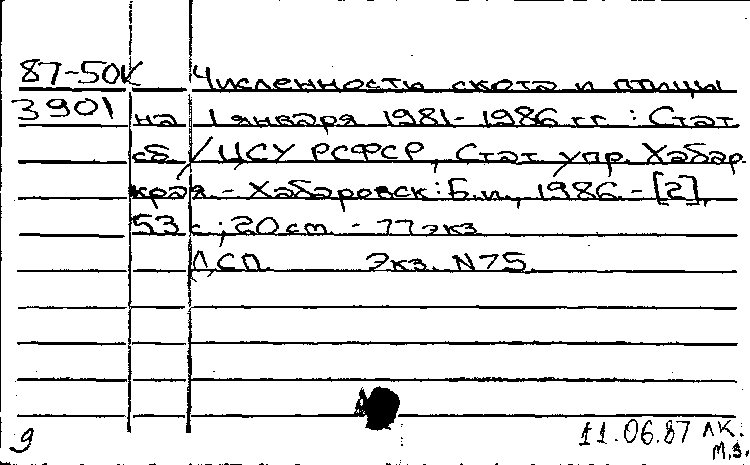 87-50К Численность скота и птицы
3901 на 1 января 1981-1986 гг : Стат
сб / ЦСУ РСФСР, Стат упр. Хабар.
края - Хабаровск : Б.и., 1986 - [2],
53 с ; 20 см. - 77 экз
ДСП. Экз. N75.
9 11.06.87 ЛК.
М.З.